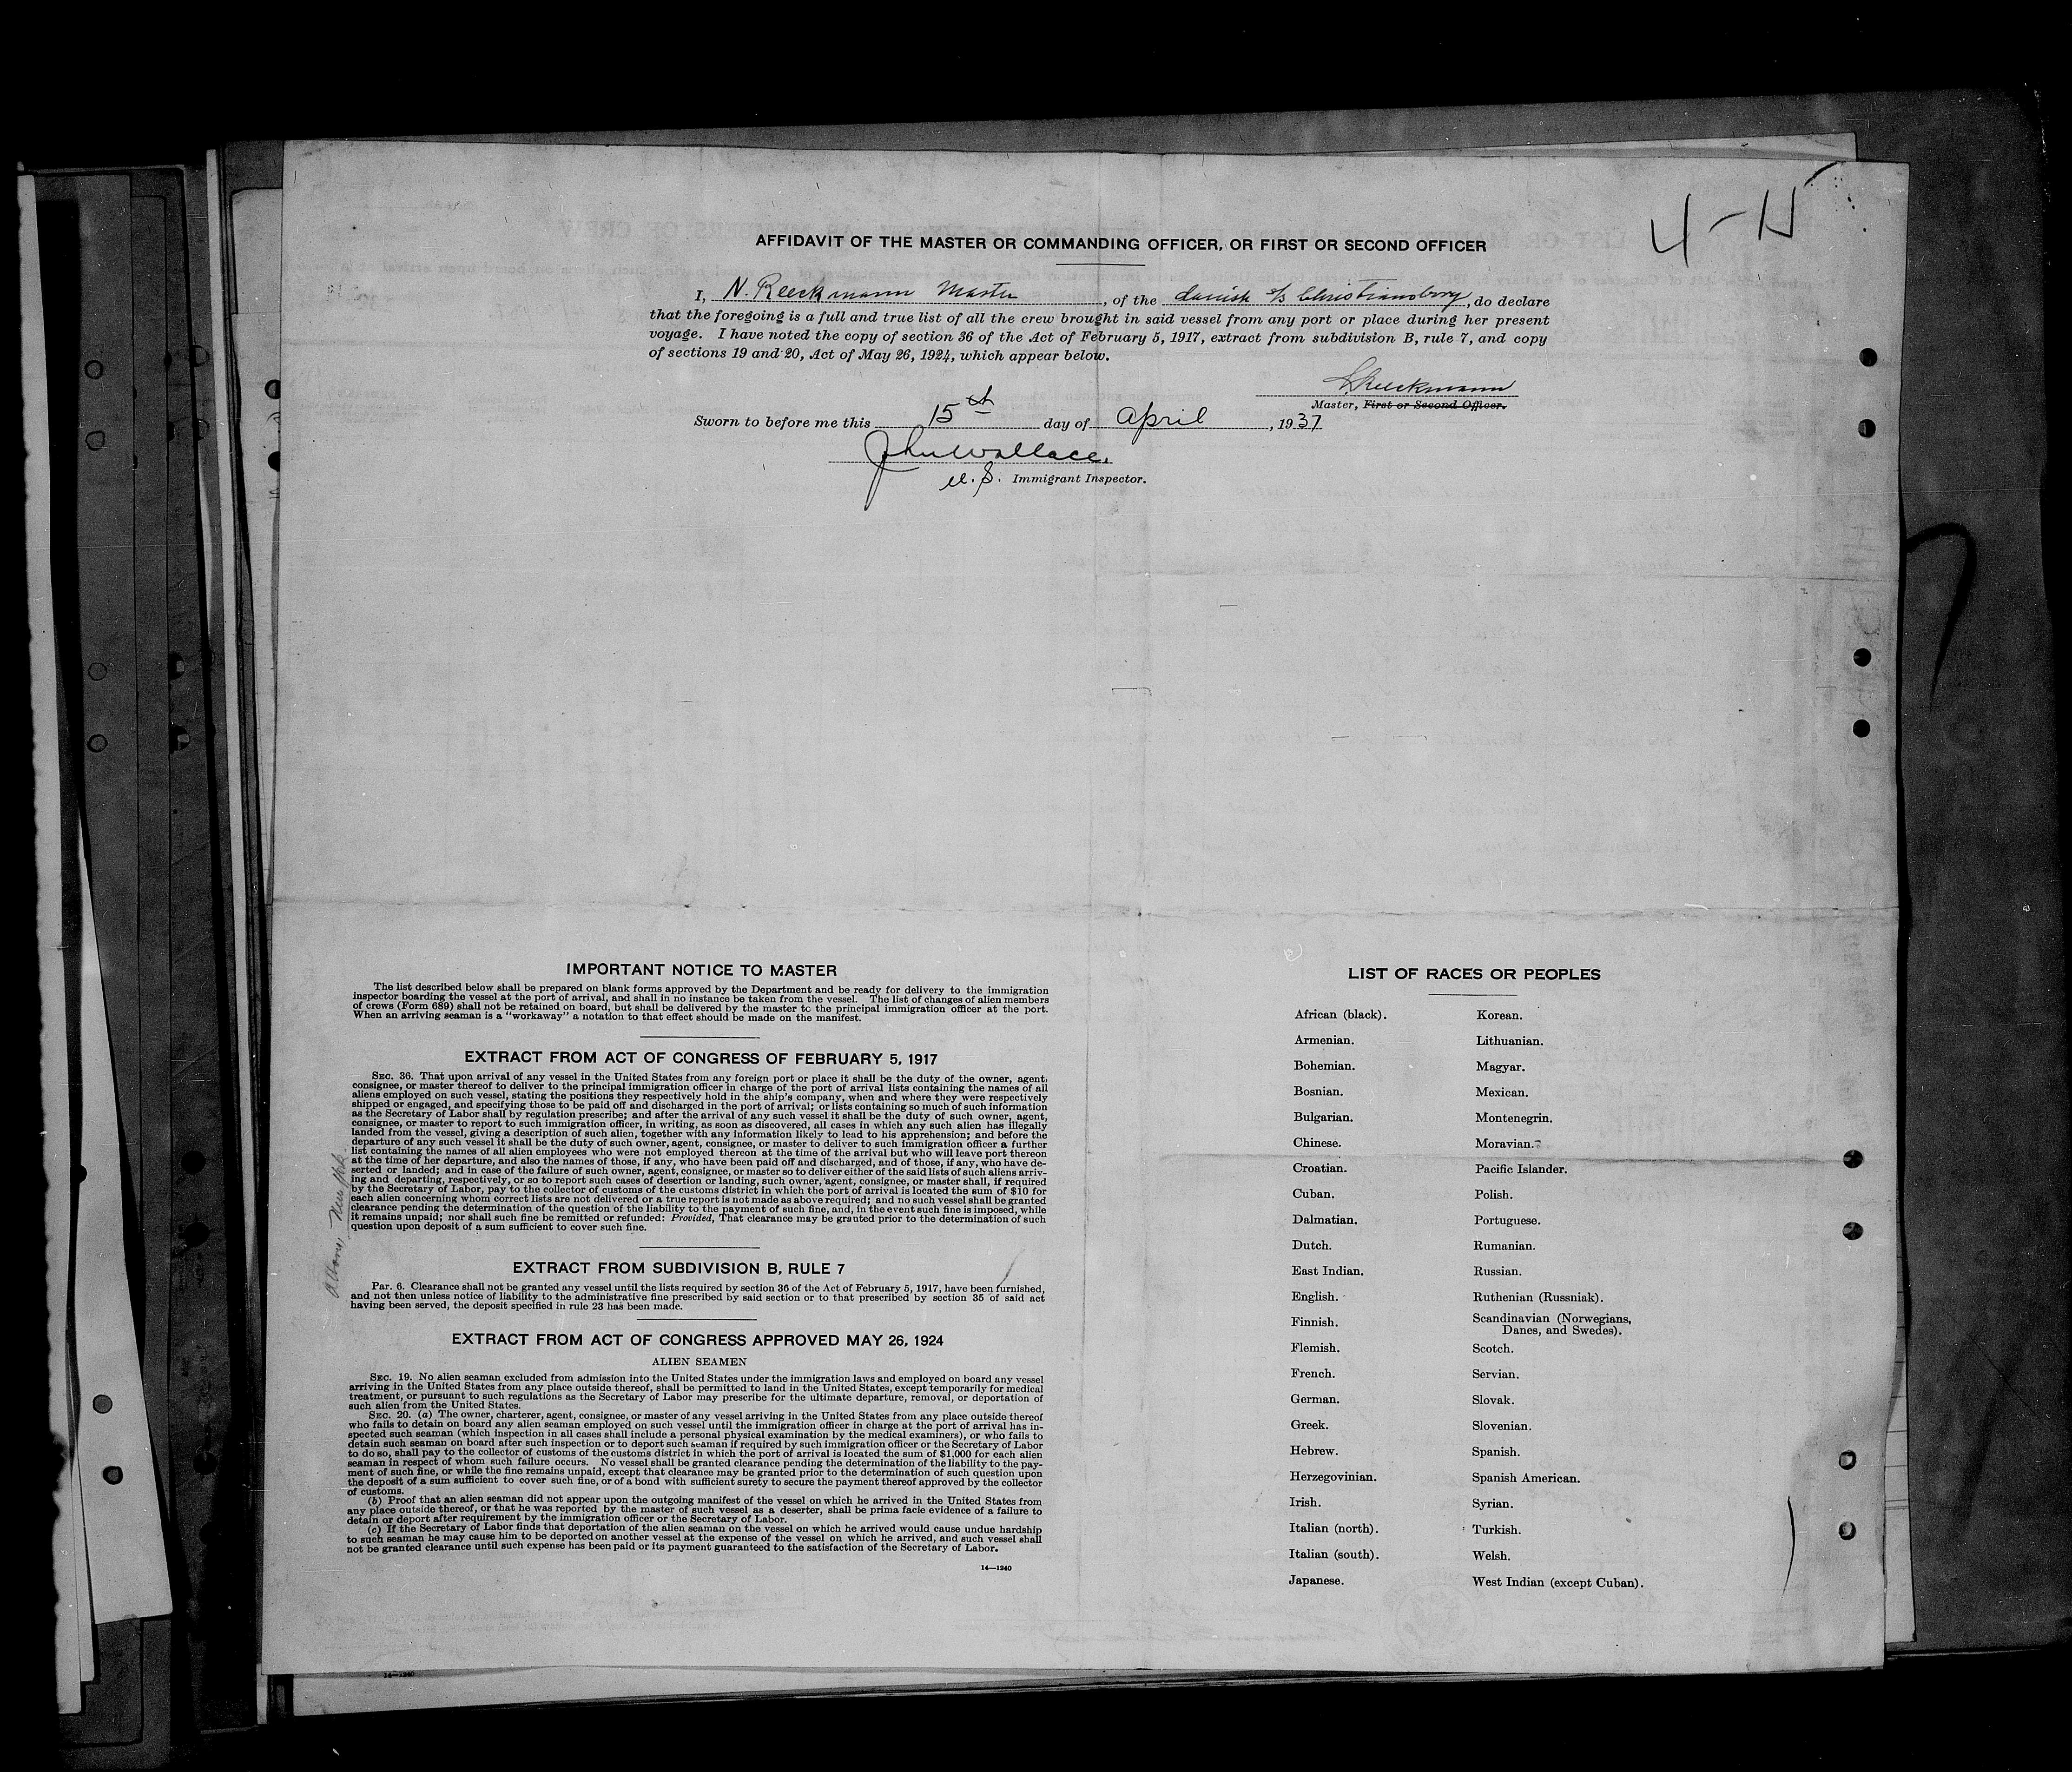 4-H
AFFIDAVIT OF THE MASTER OR COMMANDING OFFICER, OR FIRST OR SECOND OFFICER
I, N. Reeckmann Master, of the danish s/s Christiansborg, do declare
that the foregoing is a full and true list of all the crew brought in said vessel from any port or place during her present
voyage. I have noted the copy of section 36 of the Act of February 5, 1917, extract from subdivision B, rule 7, and copy
of sections 19 and 20, Act of May 26, 1924, which appear below.
Reeckmann
Master, First or Second Officer.
Sworn to before me this 15th day of April, 1937
John Wallace.
U.S. Immigrant Inspector.
IMPORTANT NOTICE TO MASTER
The list described below shall be prepared on blank forms approved by the Department and be ready for delivery to the immigration
inspector boarding the vessel at the port of arrival, and shall in no instance be taken from the vessel. The list of changes of alien members
of crews (Form 689) shall not be retained on board, but shall be delivered by the master to the principal immigration officer at the port.
When an arriving seaman is a "workaway" a notation to that effect should be made on the manifest.
EXTRACT FROM ACT OF CONGRESS OF FEBRUARY 5, 1917
SEC. 36. That upon arrival of any vessel in the United States from any foreign port or place it shall be the duty of the owner, agent,
consignee, or master thereof to deliver to the principal immigration officer in charge of the port of arrival lists containing the names of all
aliens employed on such vessel, stating the positions they respectively hold in the ship's company, when and where they were respectively
shipped or engaged, and specifying those to be paid off and discharged in the port of arrival; or lists containing so much of such information
as the Secretary of Labor shall by regulation prescribe; and after the arrival of any such vessel it shall be the duty of such owner, agent,
consignee, or master to report to such immigration officer, in writing, as soon as discovered, all cases in which any such alien has illegally
landed from the vessel, giving a description of such alien, together with any information likely to lead to his apprehension; and before the
departure of any such vessel it shall be the duty of such owner, agent, consignee, or master to deliver to such immigration officer a further
list containing the names of all alien employees who were not employed thereon at the time of the arrival but who will leave port thereon
at the time of her departure, and also the names of those, if any, who have been paid off and discharged, and of those, if any, who have de-
serted or landed; and in case of the failure of such owner, agent, consignee, or master so to deliver either of the said lists of such aliens arriv-
ing and departing, respectively, or so to report such cases of desertion or landing, such owner, agent, consignee, or master shall, if required
by the Secretary of Labor, pay to the collector of customs of the customs district in which the port of arrival is located the sum of $10 for
each alien concerning whom correct lists are not delivered or a true report is not made as above required; and no such vessel shall be granted
clearance pending the determination of the question of the liability to the payment of such fine, and, in the event such fine is imposed, while
it remains unpaid; nor shall such fine be remitted or refunded: Provided, That clearance may be granted prior to the determination of such
question upon deposit of a sum sufficient to cover such fine.
Albany, New York
EXTRACT FROM SUBDIVISION B, RULE 7
Par. 6. Clearance shall not be granted any vessel until the lists required by section 36 of the Act of February 5, 1917, have been furnished,
and not then unless notice of liability to the administrative fine prescribed by said section or to that prescribed by section 35 of said act
having been served, the deposit specified in rule 23 has been made.
EXTRACT FROM ACT OF CONGRESS APPROVED MAY 26, 1924
ALIEN SEAMEN
SEC. 19. No alien seaman excluded from admission into the United States under the immigration laws and employed on board any vessel
arriving in the United States from any place outside thereof, shall be permitted to land in the United States, except temporarily for medical
treatment, or pursuant to such regulations as the Secretary of Labor may prescribe for the ultimate departure, removal, or deportation of
such alien from the United States.
SEC. 20. (a) The owner, charterer, agent, consignee, or master of any vessel arriving in the United States from any place outside thereof
who fails to detain on board any alien seaman employed on such vessel until the immigration officer in charge at the port of arrival has in-
spected such seaman (which inspection in all cases shall include a personal physical examination by the medical examiners), or who fails to
detain such seaman on board after such inspection or to deport such seaman if required by such immigration officer or the Secretary of Labor
to do so, shall pay to the collector of customs of the customs district in which the port of arrival is located the sum of $1,000 for each alien
seaman in respect of whom such failure occurs. No vessel shall be granted clearance pending the determination of the liability to the pay-
ment of such fine, or while the fine remains unpaid, except that clearance may be granted prior to the determination of such question upon
the deposit of a sum sufficient to cover such fine, or of a bond with sufficient surety to secure the payment thereof approved by the collector
of customs.
(b) Proof that an alien seaman did not appear upon the outgoing manifest of the vessel on which he arrived in the United States from
any place outside thereof, or that he was reported by the master of such vessel as a deserter, shall be prima facie evidence of a failure to
detain or deport after requirement by the immigration officer or the Secretary of Labor.
(c) If the Secretary of Labor finds that deportation of the alien seaman on the vessel on which he arrived would cause undue hardship
to such seaman he may cause him to be deported on another vessel at the expense of the vessel on which he arrived, and such vessel shall
not be granted clearance until such expense has been paid or its payment guaranteed to the satisfaction of the Secretary of Labor.
14—1240
LIST OF RACES OR PEOPLES
African (black).
Armenian.
Bohemian.
Bosnian.
Bulgarian.
Chinese.
Croatian.
Cuban.
Dalmatian.
Dutch.
East Indian.
English.
Finnish.
Flemish.
French.
German.
Greek.
Hebrew.
Herzegovinian.
Irish.
Italian (north).
Italian (south).
Japanese.
Korean.
Lithuanian.
Magyar.
Mexican.
Montenegrin.
Moravian.
Pacific Islander.
Polish.
Portuguese.
Rumanian.
Russian.
Ruthenian (Russniak).
Scandinavian (Norwegians,
Danes, and Swedes).
Scotch.
Servian.
Slovak.
Slovenian.
Spanish.
Spanish American.
Syrian.
Turkish.
Welsh.
West Indian (except Cuban).
14—1240